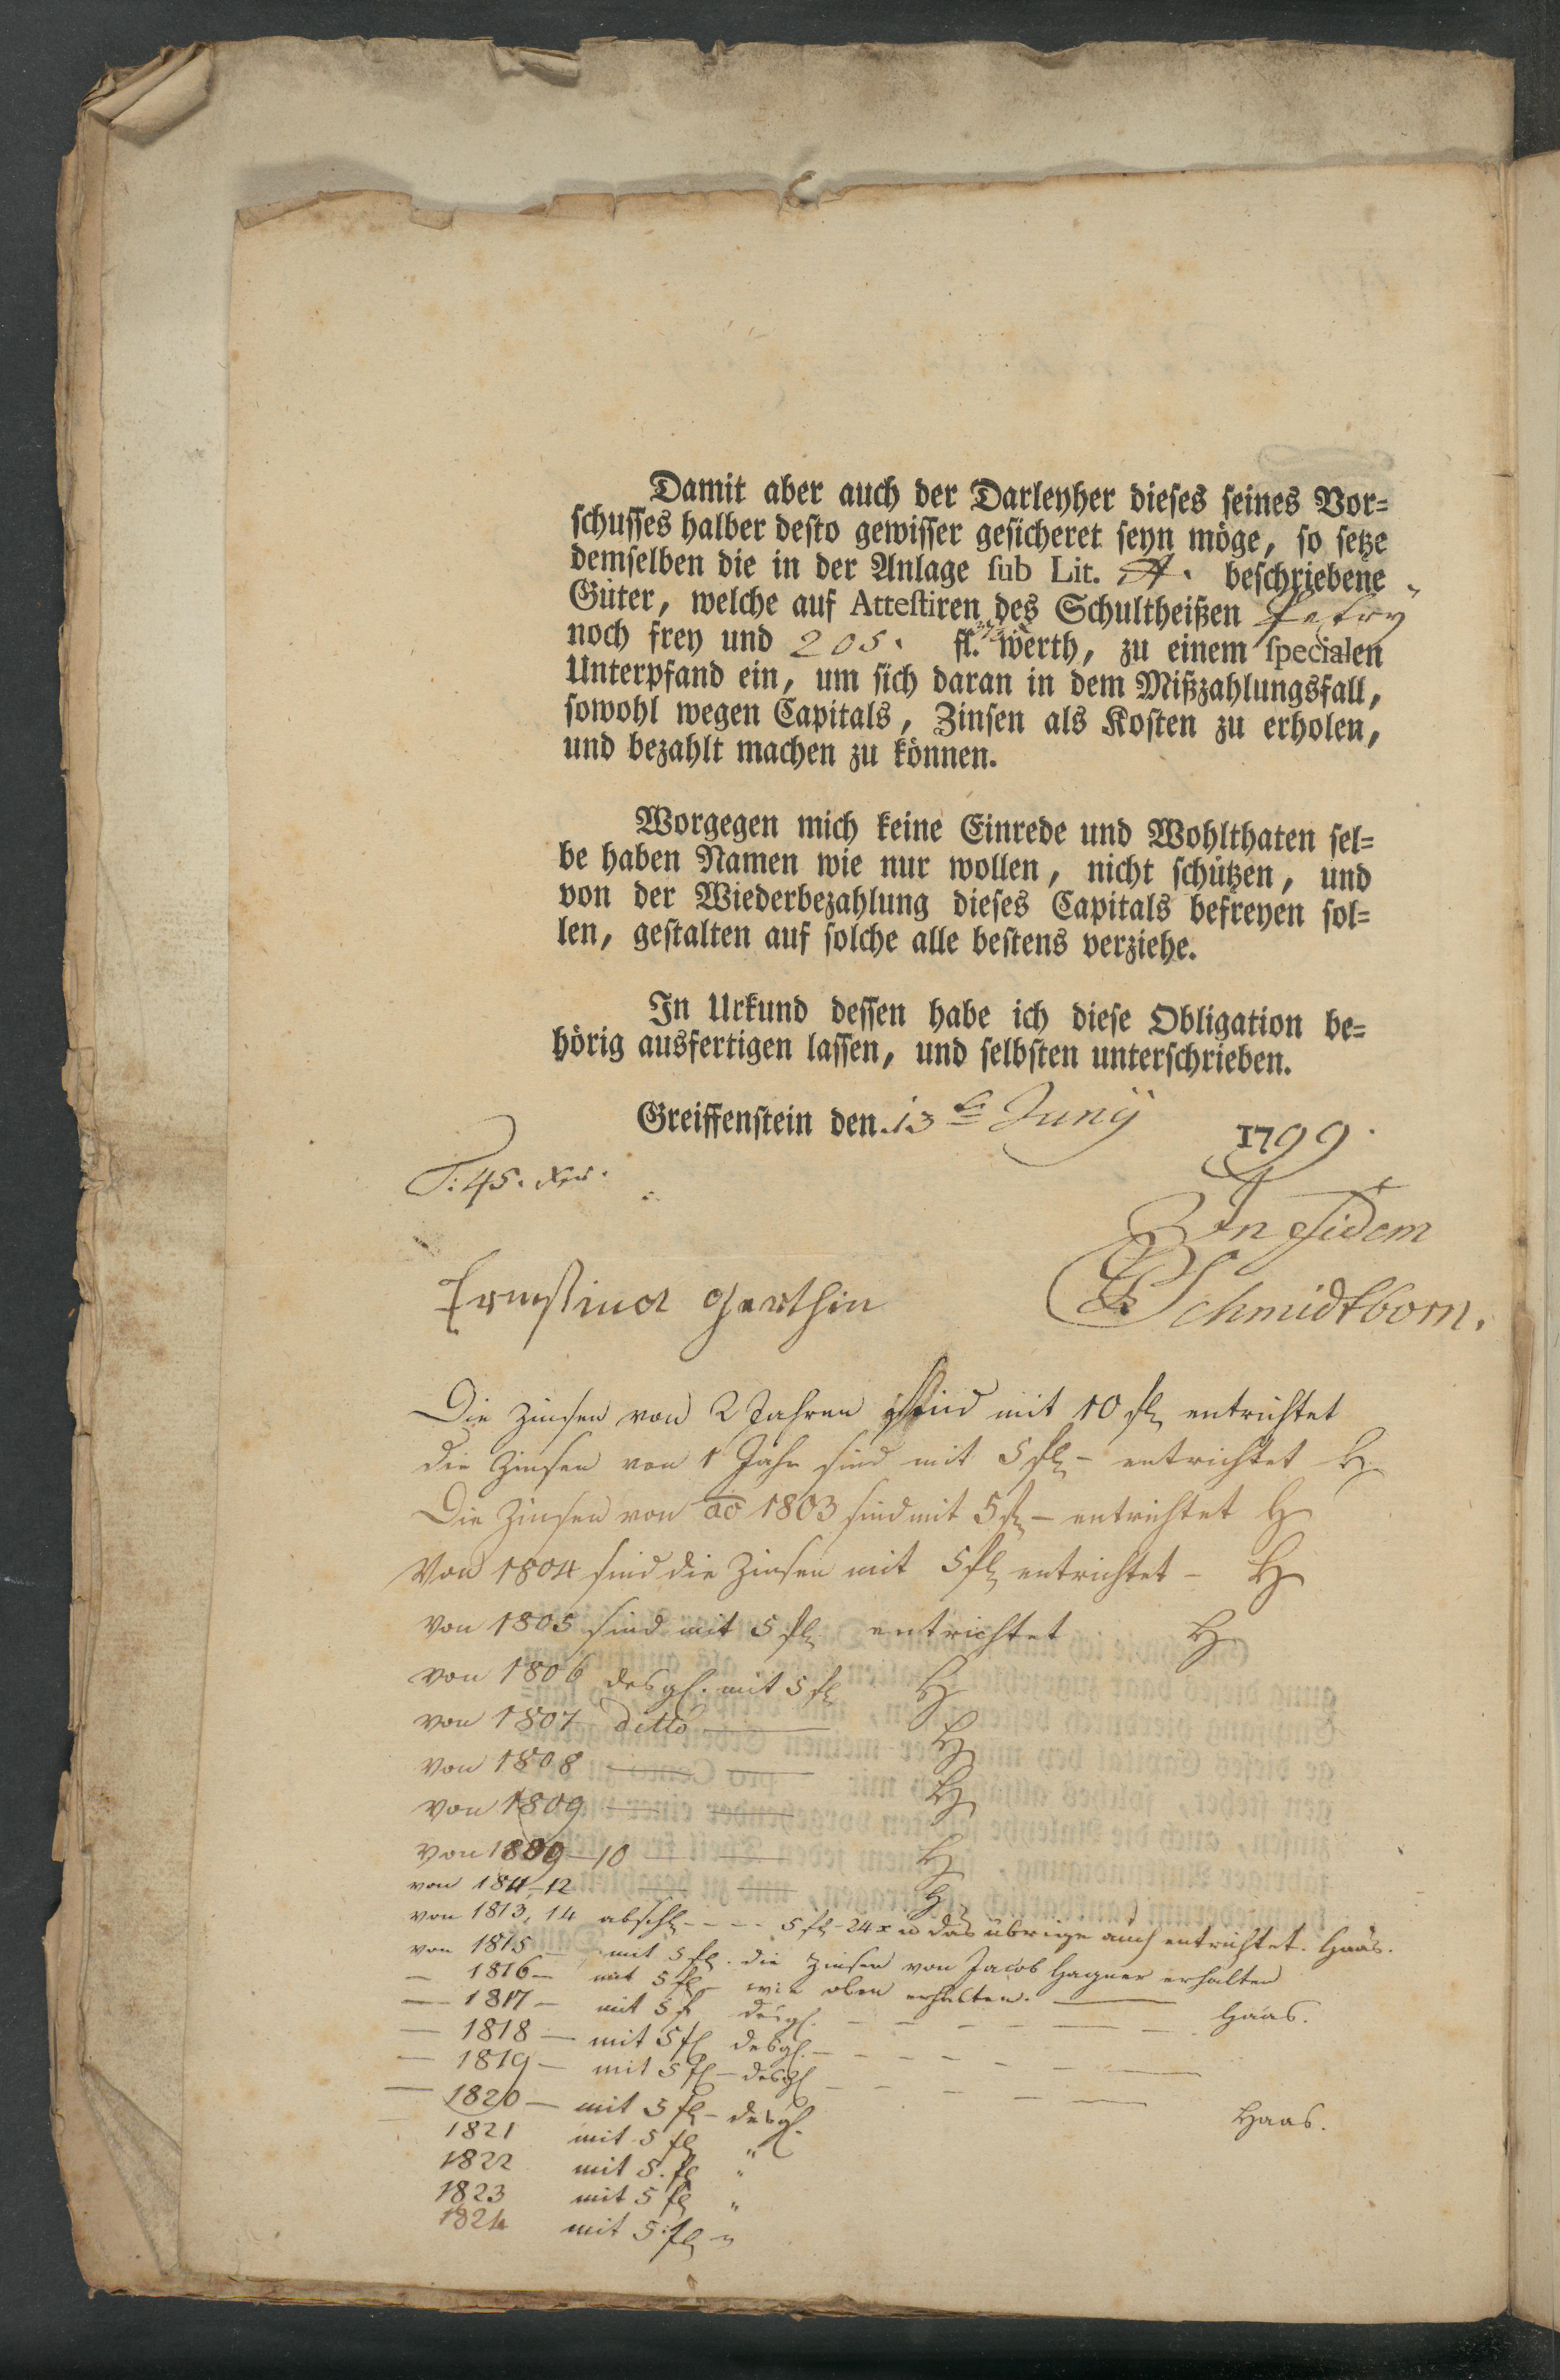 Damit aber auch der Darleyher dieses seines Vor=
schusses halber desto gewisser gesicheret seyn möge, so setze
demselben die in der Anlage sub Lit. A. beschriebene
Güter, welche auf Attestiren des Schultheißen Petry
noch frey und 205. fl. werth, zu einem specialen
Unterpfand ein, um sich daran in dem Mißzahlungsfall,
sowohl wegen Capitals, Zinsen als Kosten zu erholen,
und bezahlt machen zu können.
Worgegen mich keine Einrede und Wohlthaten sel=
be haben Namen wie nur wollen, nicht schützen, und
von der Wiederbezahlung dieses Capitals befreyen sol=
len, gestalten auf solche alle bestens verziehe.
In Urkund dessen habe ich diese Obligation be=
hörig ausfertigen lassen, und selbsten unterschrieben.
Greiffenstein den 13t Juny 1799.
T: 45. xr.
In fidem
Schmidtborn.
Ernstina Gerthin
Die Zinsen von 2 Jahren sind mit 10 fl entrichtet
die Zinsen von 1 Jahr sind mit 5 fl - entrichtet H
Die Zinsen von ao 1803 sind mit 5 fl - entrichtet H
Von 1804 sind die Zinsen mit 5 fl entrichtet - H
von 1805 sind mit 5 fl entrichtet H
von 1806 desgl. mit 5 fl H
von 1807 ditto — H
von 1808 — — H
von 1809 — —
von 1809-10 — — H
von 1811-12 — — H
von 1813, 14 abschl - - - 5 fl - 24 x u das übrige auch entrichtet. Haas.
von 1815 — mit 5 fl. die Zinsen von Jacob Hagner erhalten
— 1816 — mit 5 fl — wie oben erhalten. — Haas.
— 1817 — mit 5 fl desgl. - - - -
— 1818 — mit 5 fl desgl. - - - -
— 1819 — mit 5 fl — desgl - - - -
— 1820 — mit 5 fl — desgl. Haas.
1821 mit 5 fl "
1822 mit 5. fl "
1823 mit 5 fl "
1824 mit 5: fl "